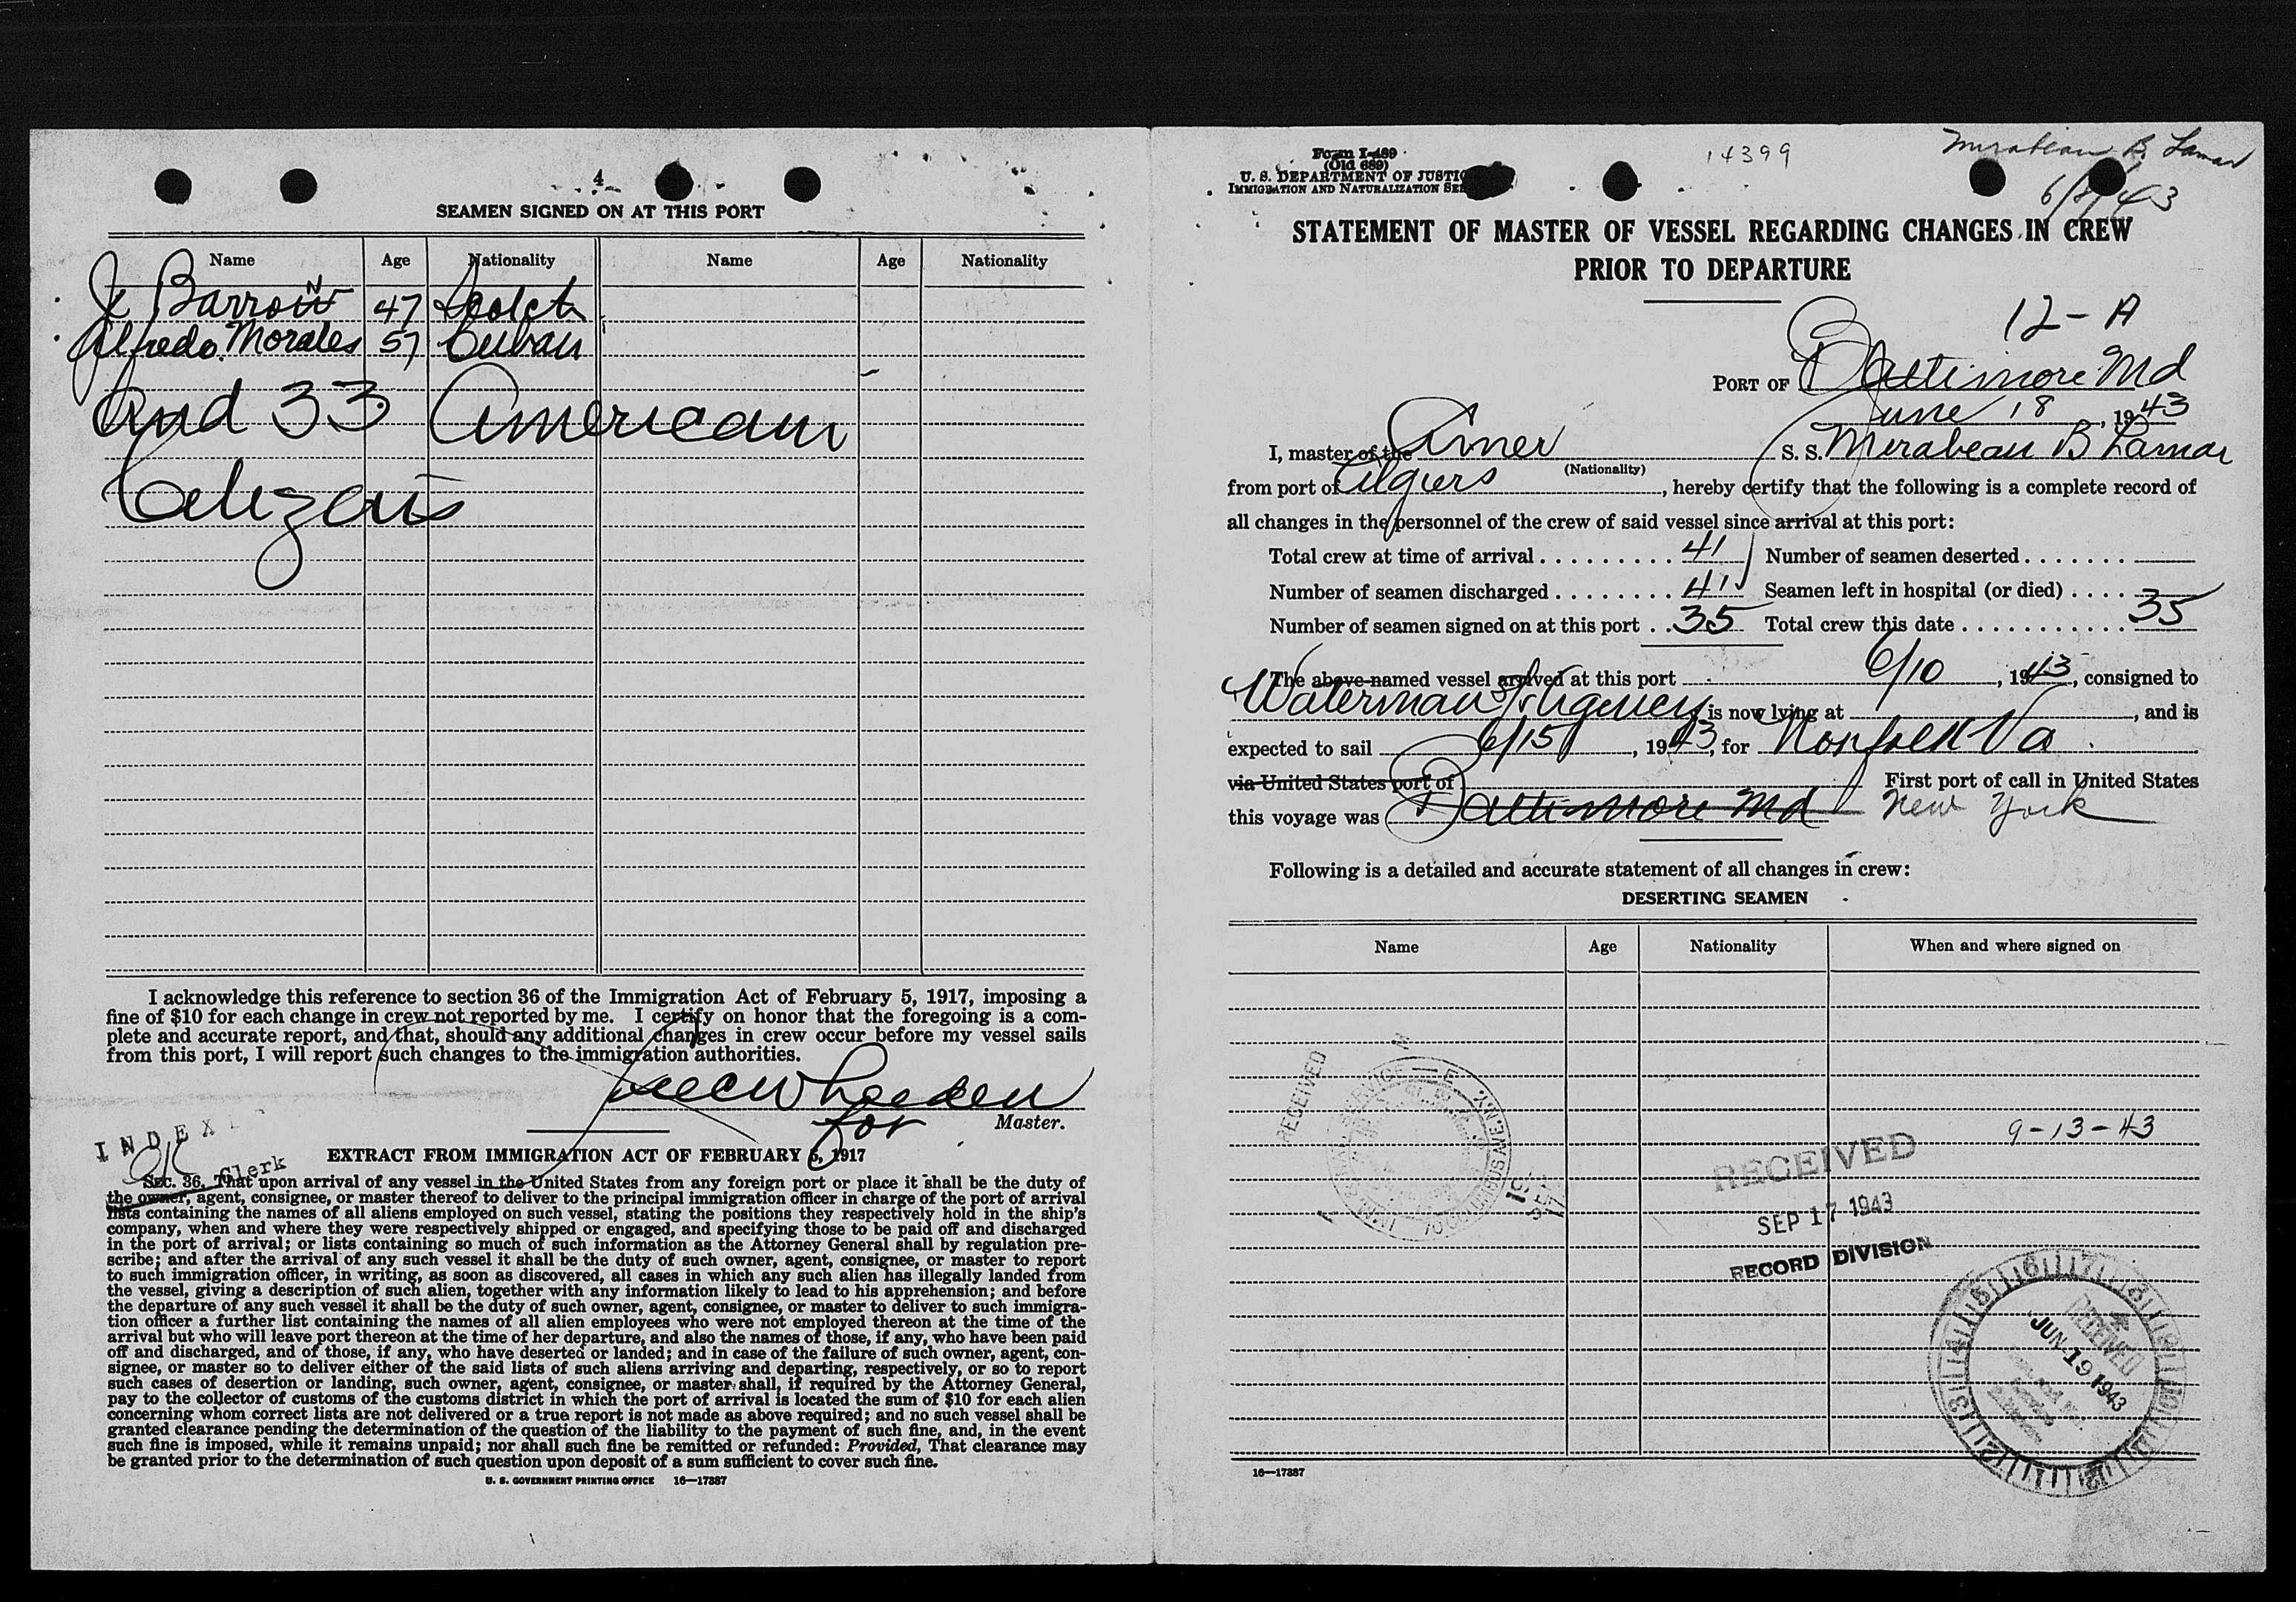 4
SEAMEN SIGNED ON AT THIS PORT
Name Age Nationality Name Age Nationality
J Barrow N 47 Scotch
Alfredo Morales 57 Cuban
And 33 American
Citizens
I acknowledge this reference to section 36 of the Immigration Act of February 5, 1917, imposing a
fine of $10 for each change in crew not reported by me. I certify on honor that the foregoing is a com-
plete and accurate report, and that, should any additional changes in crew occur before my vessel sails
from this port, I will report such changes to the immigration authorities.
for Master.
INDEX
OK Clerk
EXTRACT FROM IMMIGRATION ACT OF FEBRUARY 5, 1917
SEC. 36. That upon arrival of any vessel in the United States from any foreign port or place it shall be the duty of
the owner, agent, consignee, or master thereof to deliver to the principal immigration officer in charge of the port of arrival
lists containing the names of all aliens employed on such vessel, stating the positions they respectively hold in the ship's
company, when and where they were respectively shipped or engaged, and specifying those to be paid off and discharged
in the port of arrival; or lists containing so much of such information as the Attorney General shall by regulation pre-
scribe; and after the arrival of any such vessel it shall be the duty of such owner, agent, consignee, or master to report
to such immigration officer, in writing, as soon as discovered, all cases in which any such alien has illegally landed from
the vessel, giving a description of such alien, together with any information likely to lead to his apprehension; and before
the departure of any such vessel it shall be the duty of such owner, agent, consignee, or master to deliver to such immigra-
tion officer a further list containing the names of all alien employees who were not employed thereon at the time of the
arrival but who will leave port thereon at the time of her departure, and also the names of those, if any, who have been paid
off and discharged, and of those, if any, who have deserted or landed; and in case of the failure of such owner, agent, con-
signee, or master so to deliver either of the said lists of such aliens arriving and departing, respectively, or so to report
such cases of desertion or landing, such owner, agent, consignee, or master shall, if required by the Attorney General,
pay to the collector of customs of the customs district in which the port of arrival is located the sum of $10 for each alien
concerning whom correct lists are not delivered or a true report is not made as above required; and no such vessel shall be
granted clearance pending the determination of the question of the liability to the payment of such fine, and, in the event
such fine is imposed, while it remains unpaid; nor shall such fine be remitted or refunded: Provided, That clearance may
be granted prior to the determination of such question upon deposit of a sum sufficient to cover such fine.
U. S. GOVERNMENT PRINTING OFFICE 16—17387
Form I-489
(Old 689)
U. S. DEPARTMENT OF JUSTIC
IMMIGRATION AND NATURALIZATION SE
14399
Mirabeau B. Lamar
STATEMENT OF MASTER OF VESSEL REGARDING CHANGES IN CREW
PRIOR TO DEPARTURE
12-A
PORT OF Baltimore Md
June 18, 1943
I, master of the Amer S. S. Mirabeau B Lamar
(Nationality)
from port of Algiers, hereby certify that the following is a complete record of
all changes in the personnel of the crew of said vessel since arrival at this port:
Total crew at time of arrival 41 Number of seamen deserted
Number of seamen discharged 41 Seamen left in hospital (or died)
Number of seamen signed on at this port 35 Total crew this date 35
The above-named vessel arrived at this port 6/10, 1943, consigned to
Waterman S/S Agency is now lying at , and is
expected to sail 6/15, 1943, for Norfolk Va.
via United States port of First port of call in United States
this voyage was Baltimore Md New York
Following is a detailed and accurate statement of all changes in crew:
DESERTING SEAMEN
Name Age Nationality When and where signed on
9-13-43
RECEIVED
RECEIVED
SEP 17 1943
RECORD DIVISION
RECEIVED
JUN 19 1943
16—17387